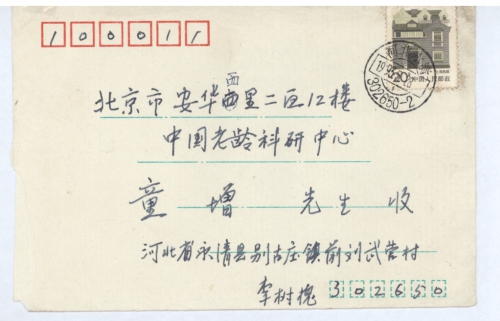 100011
北京市安华西里二区12楼
中国老龄科研中心
童增 先生 收
河北省永清县别古庄镇前刘武营村
李树槐 302650
302650-2